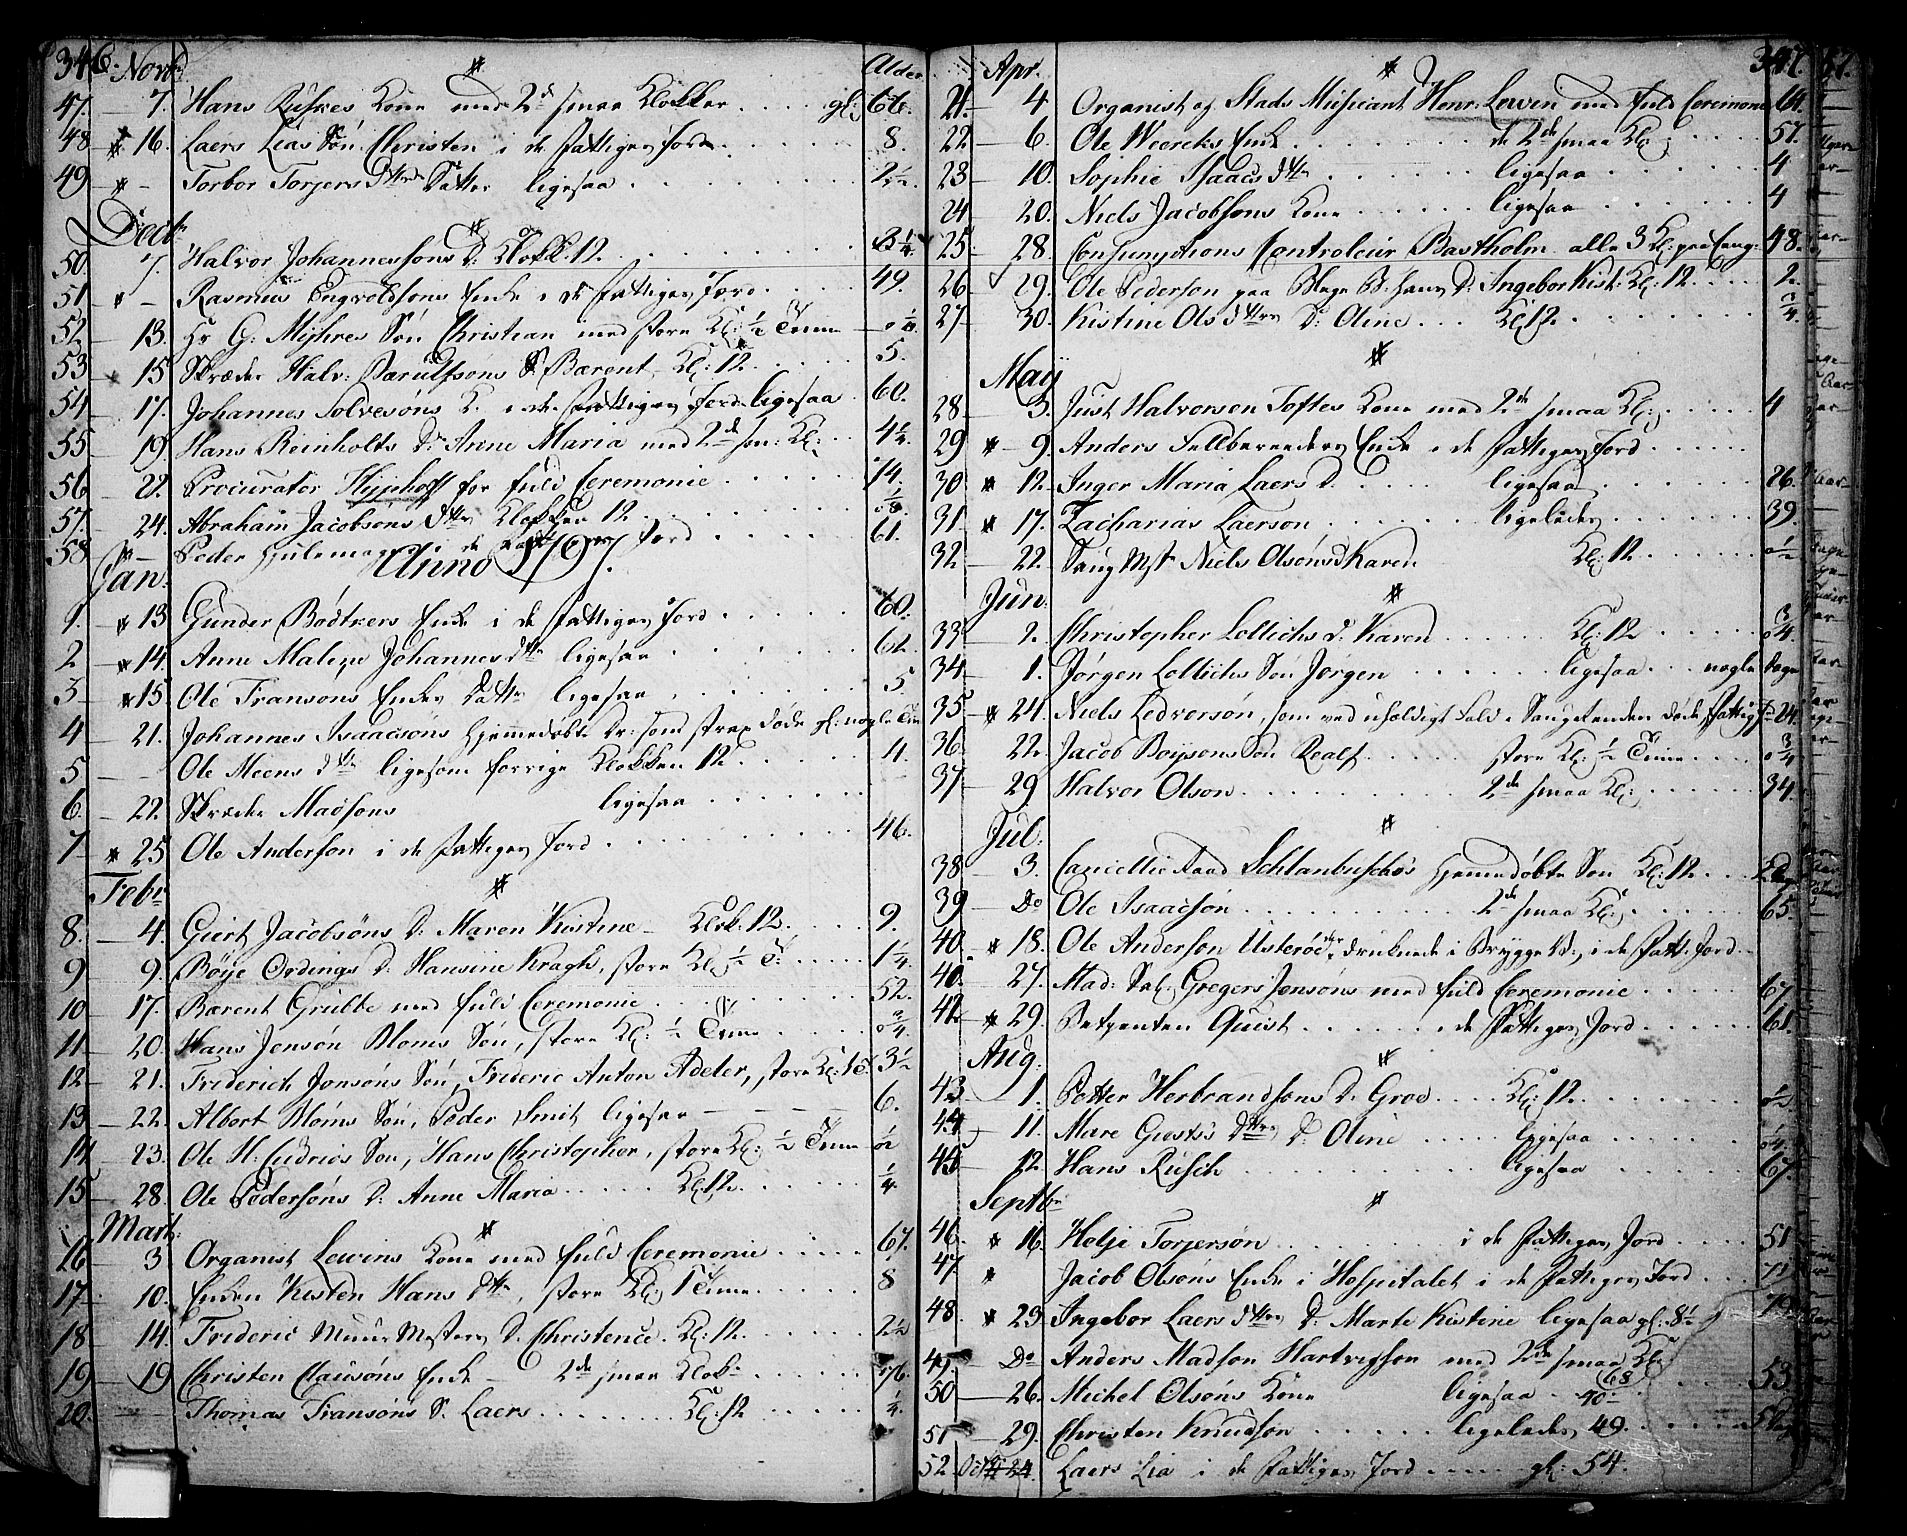 346. Novb. Alder
47. 7. Hans Rusches Kone med 2de smaa Klokker .... gl: 66.
48 16. Laers Lias Søn Christen i de fattiges Jord ..... 8.
49 - Torbor Torjers Dtters Datter ligesaa ........ 2½.
Decb.
50. 7. Halvor Johannessøns D. Klokk. 12 ........ 3¼
51 - Rasmus Engvoldsøns Enke i de fattiges Jord .... 49.
52 13. Hr G: Mÿhres Søn Christian med store Kl: ½ Time
53 15 Skræder Halv: Barulfsøns S. Barent, Kl: 12 ..... 5.
54 17. Johannes Solvesøns K. i de fattiges Jord ligesaa . 60.
55 19. Hans Reinholds Dr Anne Maria med 2de sm: Kl: . . 4¼.
56 22. Procurator Hÿphoff for fuld Ceremonie ..... 74.
57. 24. Abraham Jacobsøns dtter Klokken 12 .......
58 - Peder Hjulemager i de fattiges Jord .... 61.
Jan: Anno 1797.
1. 13 Gunder Bødkers Enke i de fattiges Jord ..... 60.
2 14. Anne Malene Johannesdtter ligesaa ...... 62.
3 15 Ole Fransøns Enkes Datter ligesaa ....... 5
4 21. Johannes Isaacsøns hjemmedøbte Dr: som strax døde gl: nogle Tim
5 - Ole Meens dtter ligesom forrige Klokken 12 ..... 4.
6. 22. Skræder Madsons ligesaa ......
7 25 Ole Anderson i de fattiges Jord ........ 46.
Febr.
8. 4. Giert Jacobsøns D. Maren Kistine - Klok. 12 .... 9.
9 9. Böÿe Ordings D. Hansine Kragh, store Kl: ½ T: ..... 1¼.
10 17. Barent Grubbe med fuld Ceremonie ........ 52.
11 20. Hans Jensøn Bloms Søn, store Kl: ½ Time ..... ¾.
12 21. Friderich Jonsøns Søn, Frideric Anton Adeler, store Kl: 1 T. 3½
13 22. Albert Bloms Søn, Peder Smit ligesaa - - - - 6.
14 23. Ole H: Cudrios Søn, Hans Christopher, store Kl: ½ Time ½
15 28. Ole Pedersøns D. Anne Maria ..... Kl: 12 ..... ¼.
Mart:
16 3 Organist Lewins Kone med fuld Ceremonie ..... 67.
17 10. Enken Kisten Hans dtter, store Kl: 1 Time ..... 8
18 14. Frideric Muur Mesters D. Christence. Kl: 12. .... 2½
19 19 Christen Clausøns Enke - 2de smaa Klok. ..... 76.
20. Thomas Fransøns S. Laers ....... Kl: 12 ..... ¼.
Apr. 347.
21. 4 Organist og Stads Musicant Henr: Lewen med fuld Ceremonie 64
22 6. Ole Weercks Enke ....... de 2de smaa Kl: .... 57.
23 10. Sophie Isaacs dtter ..... ligesaa ...... 4
24. 20. Niels Jacobsøns Kone ..... ligesaa ...... 4
25 28. Consumptions Controleur Bastholm alle 3 Kl: paa Eng: 48.
26 29. Ole Pederson paa Huge B: Hans D: Ingebor Kist: Kl: 12 .... 2.
27 30. Kistine Ols dtters D: Oline ... Kl: 12. ....... ¾.
Maÿ
28 3. Just Halvorsen Toftes Kone med 2de smaa Kl: ..... 4
29 9. Anders Fellbereeders Enke i de fattiges Jord ......
30 12. Inger Maria Laers D. ..... ligesaa ...... 26.
31 17. Zacharias Laerson ....... ligeledes ..... 39.
32 22. Saug Mst. Niels Olsøns D Karen Kl: 12 ..... ½
Jun:
33 2. Christopher Lollichs D. Karen ..... Kl: 12 ..... ¾.
34 1. Jørgen Lollichs Søn Jørgen ...... ligesaa ... nogle Dage
35 24. Niels Ledversøn, som ved uheldigt fald i Saugetenden døde, fattig J. 24.
36. 22. Jacob Boysons Søn Realf ..... store Kl: ½ Time .... ¾
37 29 Halvor Olson ........ 2de smaa Kl: ...... 34.
Jul.
38 3. Cancellie Raad Schlanbuschs hjemmedøbte Søn Kl: 12 ...
39 Do Ole Isaacsøn ........ 2de smaa Kl: ..... 65.
40. 18. Ole Anderson Usterøe druknede i Brygge, i de fatt: Jord ..
40. 27. Mad: Sal: Gregers Jensøns med fuld Ceremonie ..... 67
42 29. Betienten Quist ...... i de fattiges Jord ..... 61.
Aug:
43 1. Petter Herbrandsøns D. Groe .... Kl: 12 ........ ½
44 11. Mare Giests's dtters D. Oline ..... ligesaa ...... ¼.
45 12 Hans Rusch ........ ligesaa ...... 67.
Septb.
46. 16. Helje Torjersøn ......... i de fattiges Jord ..... 51
47. Jacob Olsøns Enke i Hospitalet i de fattiges Jord ... 71
48. 23. Ingebor Laers dtters D. Marte Kistine ligesaa gl: 8½
49. Do Anders Madson Hartvigson med 2de smaa Kl: 68 53.
50 26. Michel Olsøns Kone ligesaa . 40
51 29. Christen Knudson ..... ligeledes 49. ......
52 Oct 24. Laers Lia i de fattiges Jord ..... gl: 54.